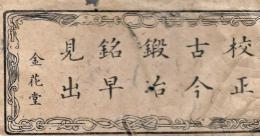 校正
古今
鍛冶
銘早
見出
金花堂